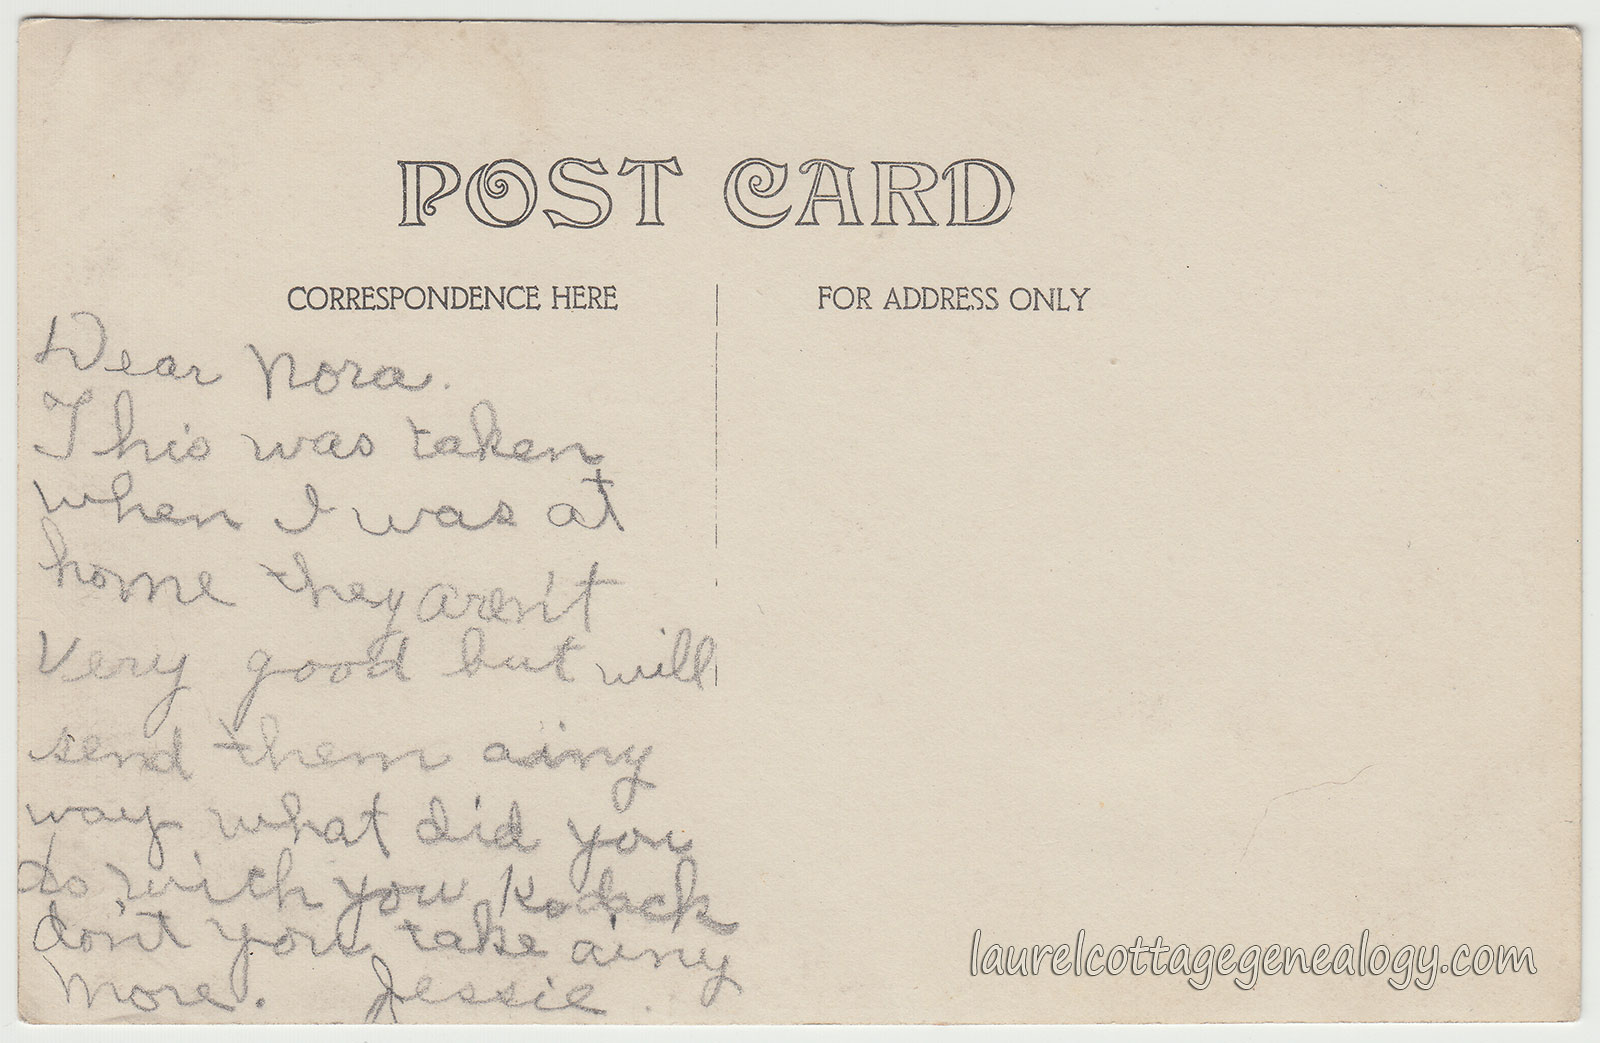 POST CARD
CORRESPONDENCE HERE
FOR ADDRESS ONLY
Dear Nora.
This was taken
when I was at
home they aren't
Very good but will
send them ainy
way what did you
do with you Kodack
don't you take ainy
more. Jessie.
laurelcottagegenealogy.com